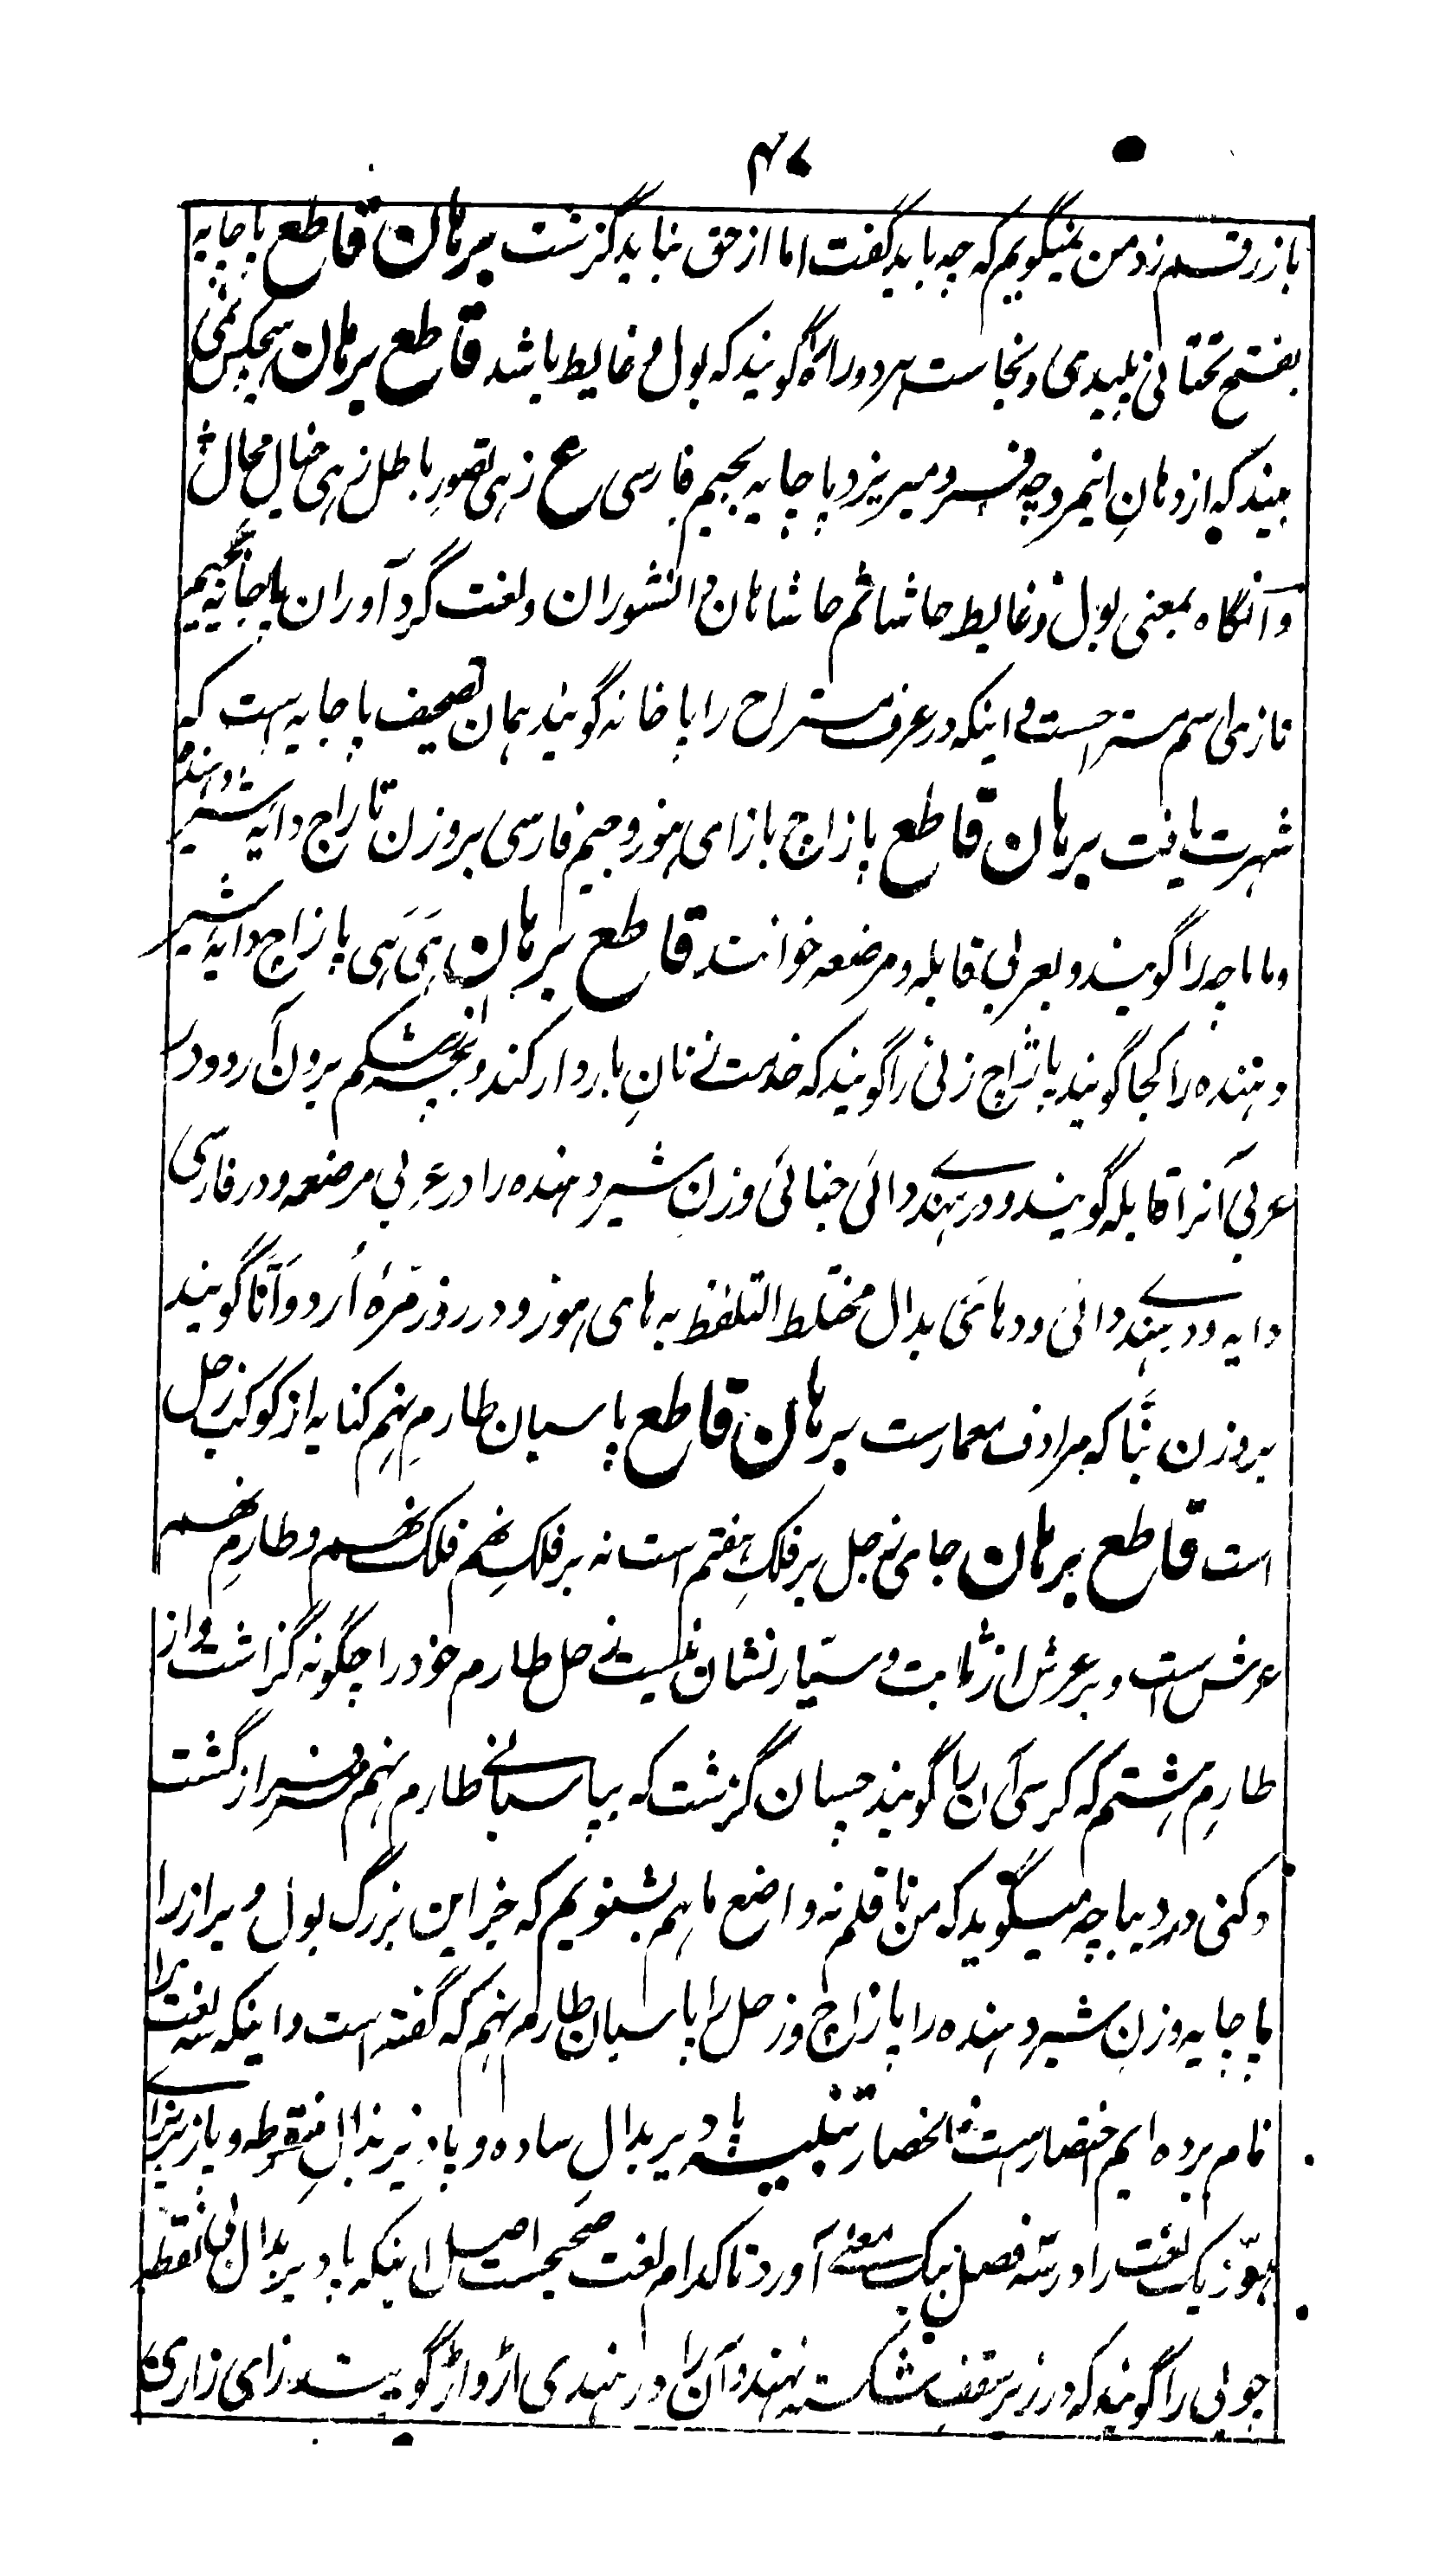 ۴۷
باز رقم زد من نمیگویم که چه باید گفت اما از حق نباید گزشت برهان قاطع پاچایه
بفتح تحتانی پلیدی و نجاست هر دو را گویند که بول و غایط باشد قاطع برهان هیچکس نمی
بیند که از دهانِ اینمرد چه فرو میریزد پاچایه بجیم فارسی ع زهی تصورِ باطل زهی خیال محال
و آنگاه بمعنی بول و غایط حاشا ثم حاشا هان دانشوران و لغت گرد آوران پاجایه بجیم
تازی اسم مستراحست و اینکه در عرف مستراح را پاخانه گویند همان تصحیف پاجایه است که
شهرت یافت برهان قاطع پازاچ بازای هوز و جیم فارسی بروزن تاراج دایه شیر دهنده
و ماماچه را گویند و بعربی قابله و مرضعه خوانند قاطع برهان هَی هَی پازاچ دایهٔ شیر
دهنده را کجا گویند پازاچ زنی را گویند که خدمت زنانِ باردار کند و بچه از شکم برون آرد و در
عربی آنرا قابله گویند و در هندی دائی جنائی و زنِ شیر دهنده را در عربی مرضعه و در فارسی
دایه و در هندی دائی و دهائی بدال مختلط التلفظ به های هوز و در روزمرّهٔ اُردو اَنّا گویند
بروزن بَنّا که مرادف معمارست برهان قاطع پاسبان طارمِ نهم کنایه از کوکب زحل
است قاطع برهان جای زحل بر فلکِ هفتم است نه بر فلکِ نهم فلک نهم و طارمِ نهم
عرش است و بر عرش از ثابت و سیّار نشان نیست زحل طارم خود را چگونه گزاشت و از
طارمِ هشتم که کرسی آن را گویند چسان گزشت که بپاسبانی طارم نهم سرفراز گشت
دکنی در دیباچه میگوید که من ناقلم نه واضع ما هم بشنویم که جز این بزرگ بول و براز را
پاچایه و زنِ شیر دهنده را پازاچ و زحل را پاسبان طارم نهم که گفته است و اینکه سه لغت را
نام برده ایم اختصارست نه انحصار تنبیه پادیر بدالِ ساده و پاذیر بذالِ منقوطه و پازیر بزای
هوّز یک لغت را در سه فصل بیک معنی آورد تا کدام لغت صحیحست اصل اینکه پادیر بدال بی نقطه
چوبی را گویند که در زیر سقف شکسته نهند و آن را در هندی اڑواڑ گویند زای زاری